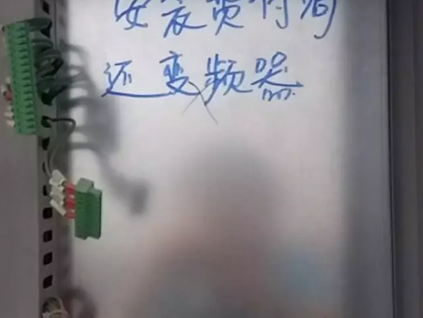 安装费付清
还变频器